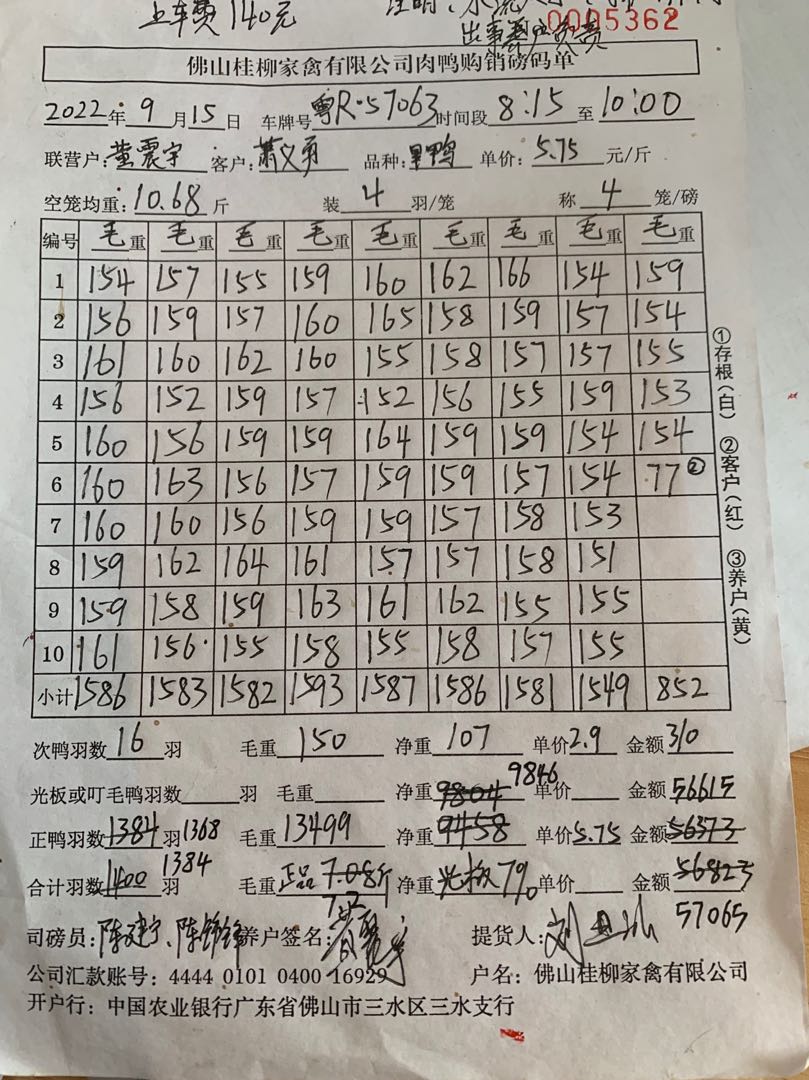 上车费140元
0005362
出事客户负责
佛山桂柳家禽有限公司肉鸭购销磅码单
2022年9月15日 车牌号 粤R·57063 时间段 8:15 至 10:00
联营户: 黄震宇 客户: 萧义勇 品种: 里鸭 单价: 5.75 元/斤
空笼均重: 10.68 斤 装 4 羽/笼 称 4 笼/磅
编号 毛重 毛重 毛重 毛重 毛重 毛重 毛重 毛重 毛重
1 154 157 155 159 160 162 166 154 159
2 156 159 157 160 165 158 159 157 154
3 161 160 162 160 155 158 157 157 155
4 156 152 159 157 152 156 155 159 153
5 160 156 159 159 164 159 159 154 154
6 160 163 156 157 159 159 157 154 77②
7 160 160 156 159 159 157 158 153
8 159 162 164 161 157 157 158 151
9 159 158 159 163 161 162 155 155
10 161 156 155 158 155 158 157 155
小计 1586 1583 1582 1593 1587 1586 1581 1549 852
①存根(白) ②客户(红) ③养户(黄)
次鸭羽数 16 羽 毛重 150 净重 107 单价 2.9 金额 310
9846
光板或叮毛鸭羽数 羽 毛重 净重 9804 单价 金额 56615
正鸭羽数 1384 羽 1368 毛重 13499 净重 9458 单价 5.75 金额 56373
1384
合计羽数 1400 羽 毛重 正品 7.08斤 净重 光板7% 单价 金额 56823
57065
司磅员: 陈建宁、陈锦锋 养户签名: 提货人:
公司汇款账号: 4444 0101 0400 16929 户名: 佛山桂柳家禽有限公司
开户行: 中国农业银行广东省佛山市三水区三水支行